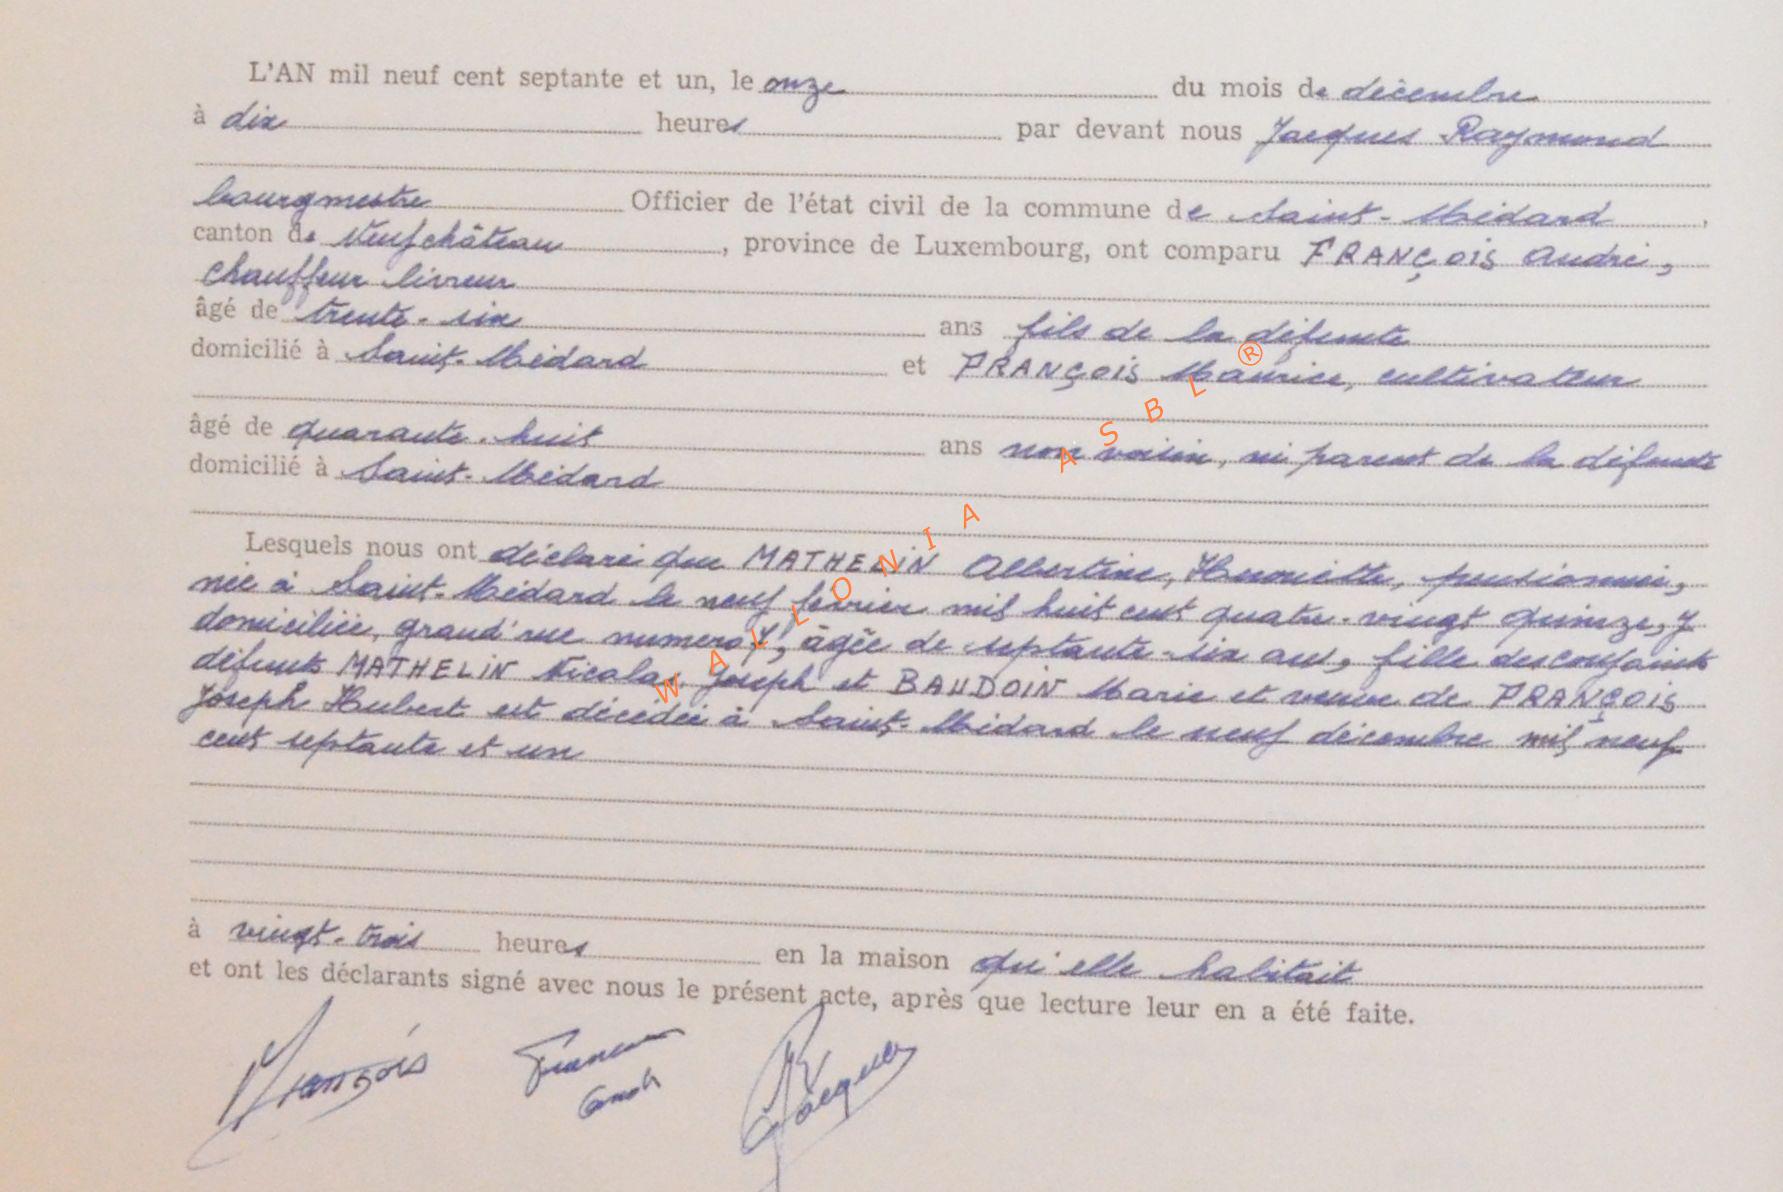 L'AN mil neuf cent septante et un, le onze du mois de décembre
à dix heures par devant nous Jacques Raymond
bourgmestre Officier de l'état civil de la commune de Saint-Médard,
canton de Neufchâteau, province de Luxembourg, ont comparu FRANÇOIS André,
chauffeur livreur
âgé de trente-six ans fils de la défunte
domicilié à Saint-Médard et FRANÇOIS Maurice, cultivateur
âgé de quarante-huit ans non voisin, ni parent de la défunte
domicilié à Saint-Médard
Lesquels nous ont déclaré que MATHELIN Albertine, Henriette, pensionnée,
née à Saint-Médard le neuf février mil huit cent quatre-vingt quinze, y
domiciliée, grand'rue numero, âgée de septante-six ans, fille des conjoints
défunts MATHELIN Nicolas Joseph et BAUDOIN Marie et veuve de FRANÇOIS
Joseph Hubert est décédée à Saint-Médard le neuf décembre mil neuf
cent septante et un
à vingt-trois heures en la maison qu'elle habitait
et ont les déclarants signé avec nous le présent acte, après que lecture leur en a été faite.
François
Jacques
WALLONIA ASBL ®